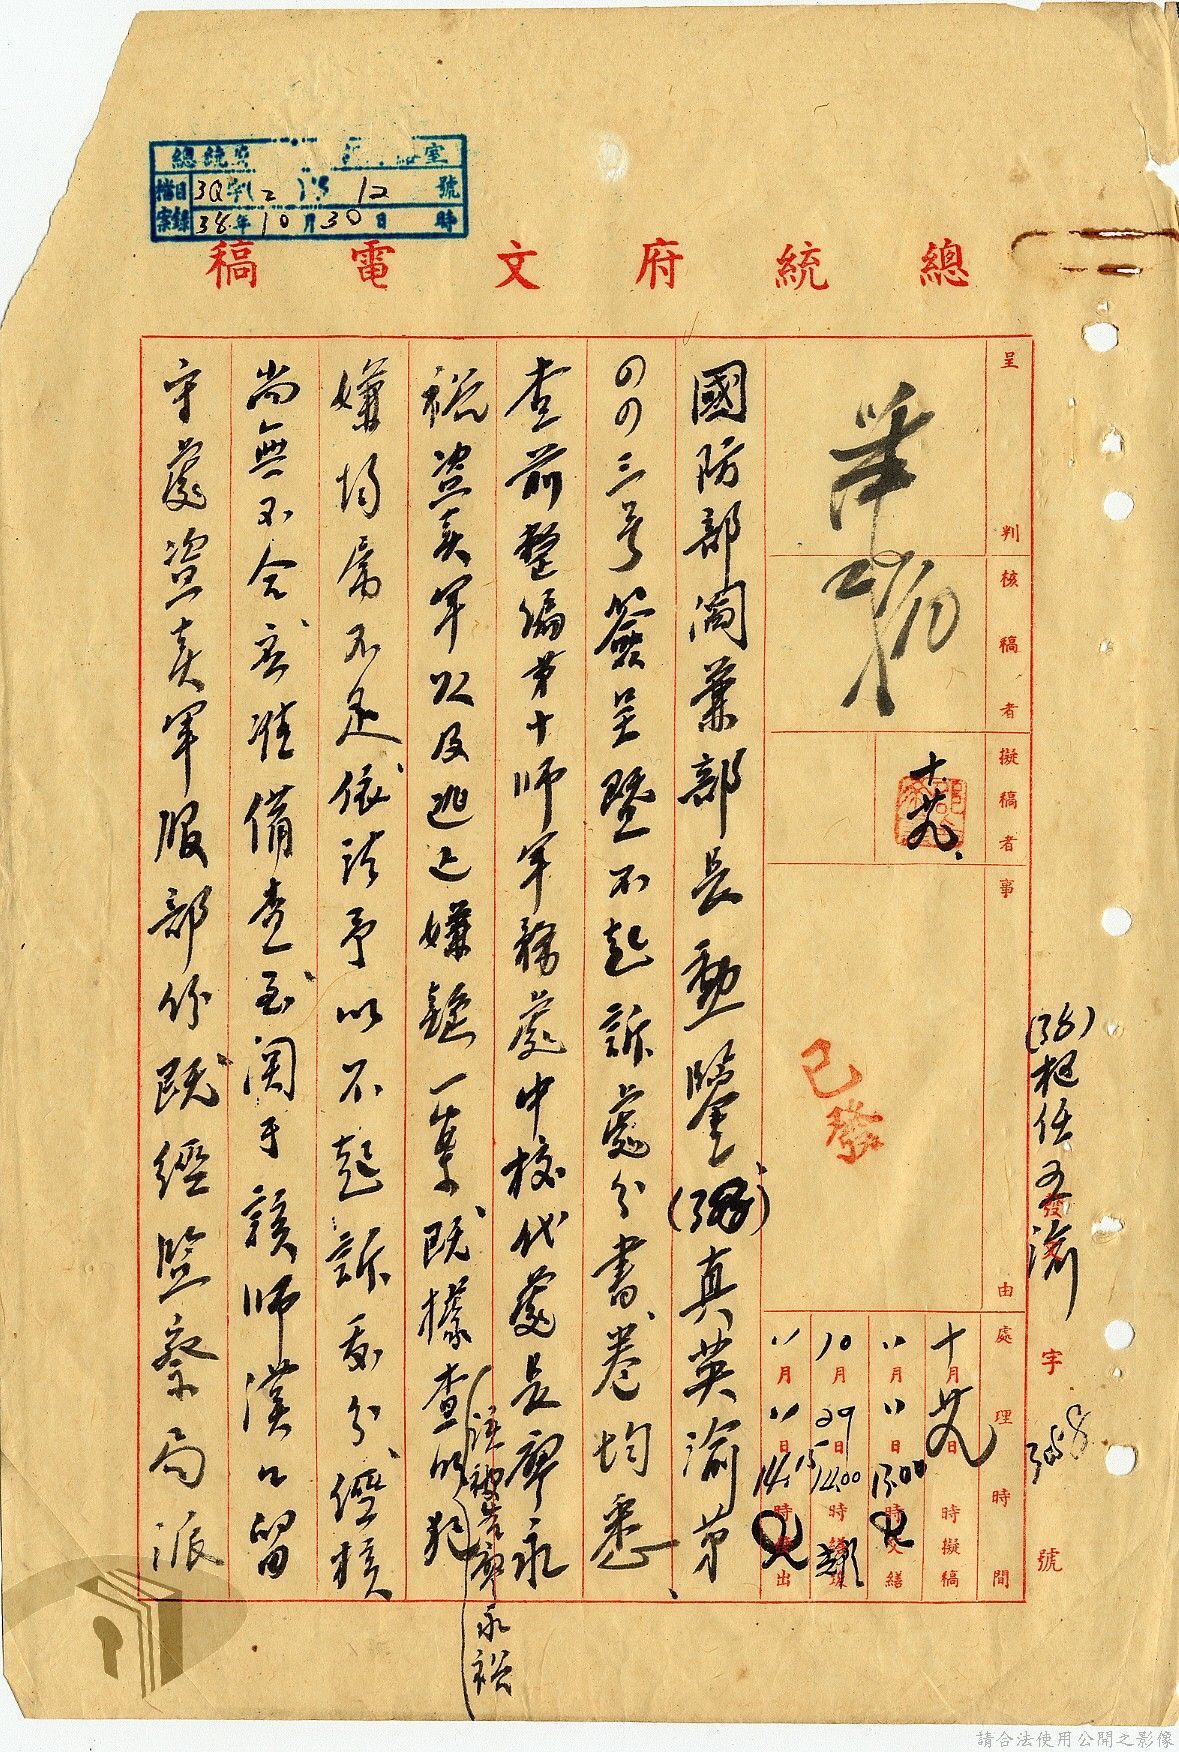 總統府 室
檔案目錄 3Q字 12 號
38年10月30日 時
總統府文電稿
(38)桂任發文字358號
呈判
核稿者
擬稿者
十.廿九.
事由
已發
處理時間
十月廿九日 時擬稿
11月11日13.00時 繕
10月29日14.00時
11月11日14.15時 出
國防部閻兼部長勳鑒(38)真英渝第
〇〇三號簽呈暨不起訴處分書、卷均悉
查前整編第十師軍務處中校代處長廖永
裕盜賣軍 及逃亡嫌疑一案既據查明犯
該被告廖永裕
嫌均屬不足依法予以不起訴處分經核
尚無不合 准備查至關于該師漢口留
守處盜賣軍服部份既經監察局派
請合法使用公開之影像